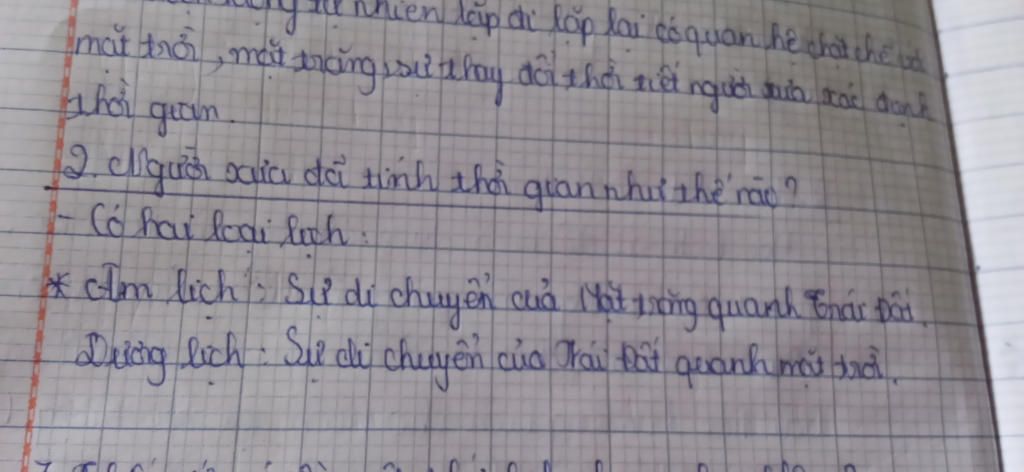 nhiên lặp đi lặp lại có quan hệ chặt chẽ với
mặt trời, mặt trăng, sự thay đổi thời tiết người xưa xác định
thời gian.
2. Người xưa đã tính thời gian như thế nào?
- Có hai loại lịch:
* Âm lịch: Sự di chuyển của Mặt trăng quanh Trái Đất.
Dương lịch: Sự di chuyển của Trái Đất quanh mặt trời.